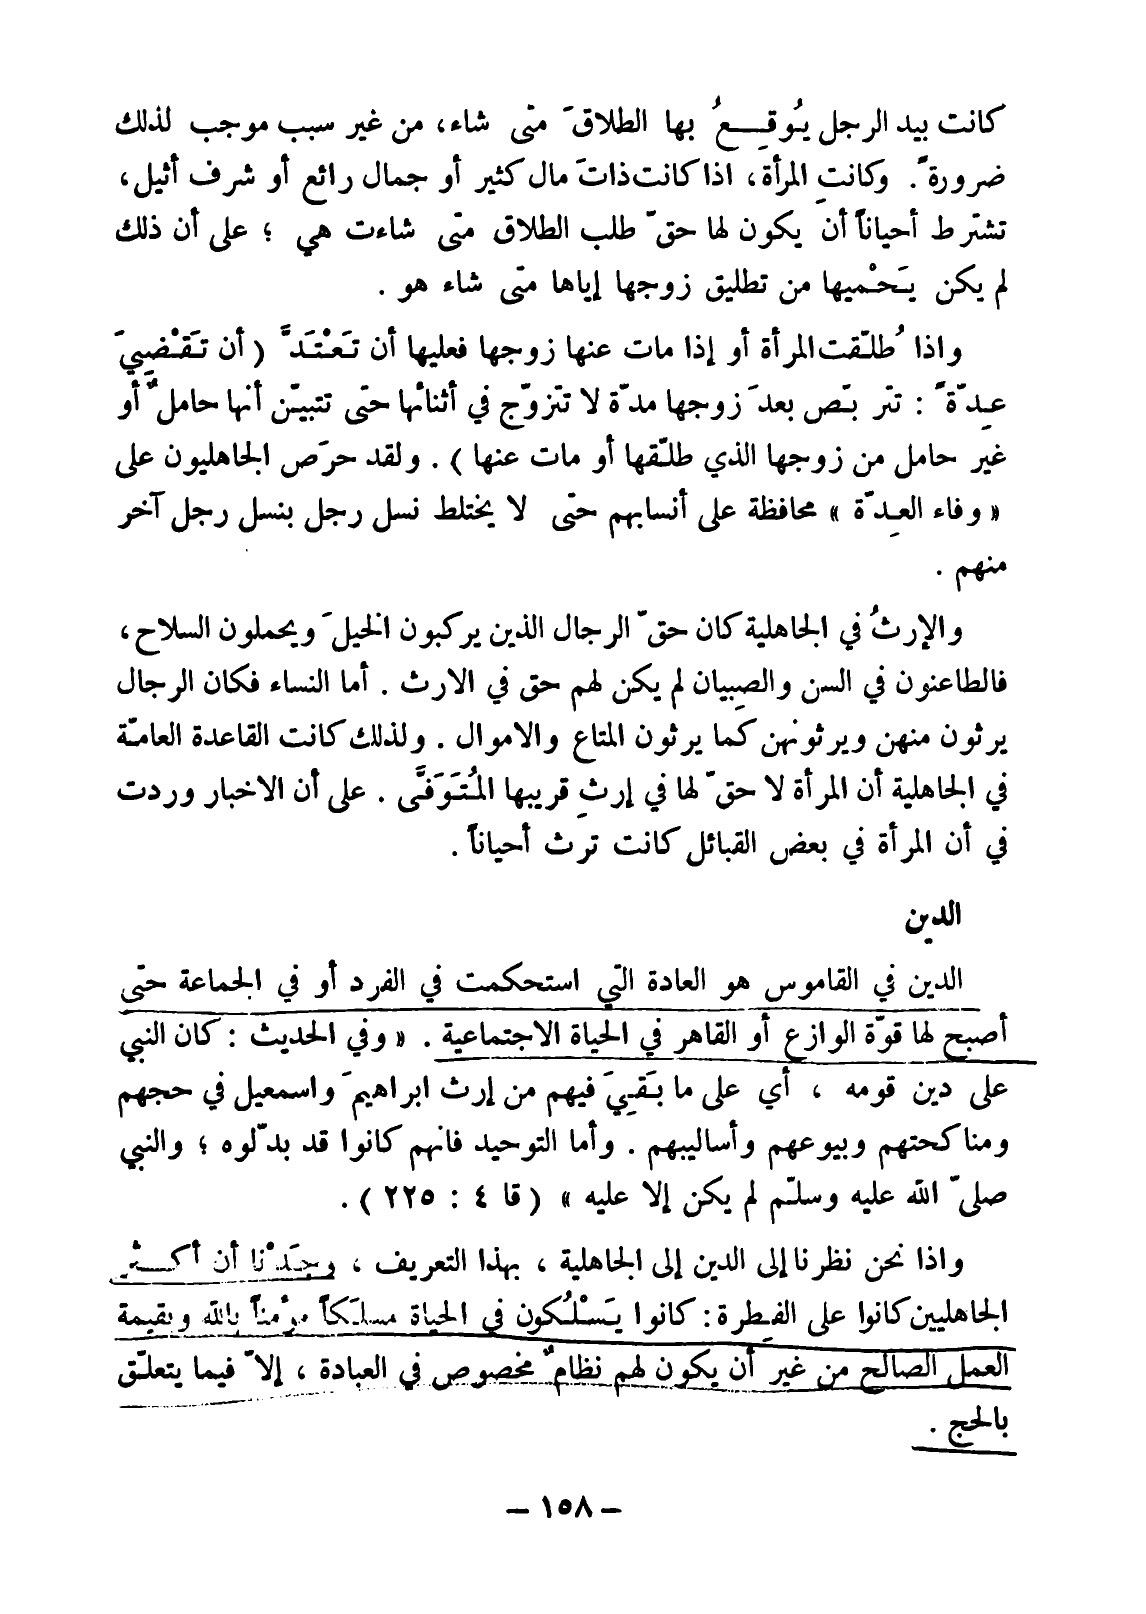 كانت بيد الرجل يُوقِعُ بها الطلاقَ متى شاء، من غير سبب موجب لذلك
ضرورةً. وكانتِ المرأة، اذا كانت ذاتَ مال كثير أو جمال رائع أو شرف أثيل،
تشترط أحياناً أن يكون لها حقّ طلب الطلاق متى شاءت هي ؛ على أن ذلك
لم يكن يَحْميها من تطليق زوجها إياها متى شاء هو .
واذا طُلّقت المرأة أو إذا مات عنها زوجها فعليها أن تَعْتَدَّ ( أن تَقْضِيَ
عِدّةً : تتربّص بعدَ زوجها مدّة لا تتزوّج في أثنائها حتى تتبيّن أنها حاملٌ أو
غير حامل من زوجها الذي طلّقها أو مات عنها ) . ولقد حرَص الجاهليون على
« وفاء العِدّة » محافظة على أنسابهم حتى لا يختلط نسل رجل بنسل رجل آخر
منهم .
والإرثُ في الجاهلية كان حقّ الرجال الذين يركبون الخيلَ ويحملون السلاح،
فالطاعنون في السن والصِبيان لم يكن لهم حق في الارث . أما النساء فكان الرجال
يرثون منهن ويرثونهن كما يرثون المتاع والاموال . ولذلك كانت القاعدة العامّة
في الجاهلية أن المرأة لا حقّ لها في إرثِ قريبها المُتَوَفَّى . على أن الاخبار وردت
في أن المرأة في بعض القبائل كانت ترث أحياناً .
الدين
الدين في القاموس هو العادة التي استحكمت في الفرد أو في الجماعة حتى
أصبح لها قوّة الوازع أو القاهر في الحياة الاجتماعية . « وفي الحديث : كان النبي
على دين قومه ، أي على ما بَقيَ فيهم من إرث ابراهيمَ واسمعيل في حجهم
ومناكحتهم وبيوعهم وأساليبهم . وأما التوحيد فانهم كانوا قد بدّلوه ؛ والنبي
صلىّ الله عليه وسلّم لم يكن إلا عليه » ( قا ٤ : ٢٢٥ ) .
واذا نحن نظرنا إلى الدين إلى الجاهلية ، بهذا التعريف ، وجَدْنا أن أكثر
الجاهليين كانوا على الفِطرة : كانوا يَسْلُكون في الحياة مسلَكاً مؤمناً بالله وبقيمة
العمل الصالح من غير أن يكون لهم نظامٌ مخصوص في العبادة ، إلاّ فيما يتعلّق
بالحج .
– ١٥٨ –